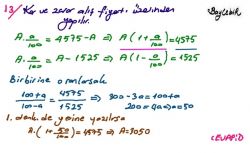 13) Kar ve zarar alış fiyatı üzerinden yapılır.
A. a/100 = 4575 - A ⇒ A(1 + a/100) = 4575
A. a/100 = A - 1525 ⇒ A(1 - a/100) = 1525
Birbirine oranlarsak
100+a/100-a = 4575/1525 ⇒ 300 - 3a = 100 + a
200 = 4a ⇒ a = 50
1. denk. de yerine yazılırsa
A.(1 + 50/100) = 4575 ⇒ A = 3050
CEVAP: D